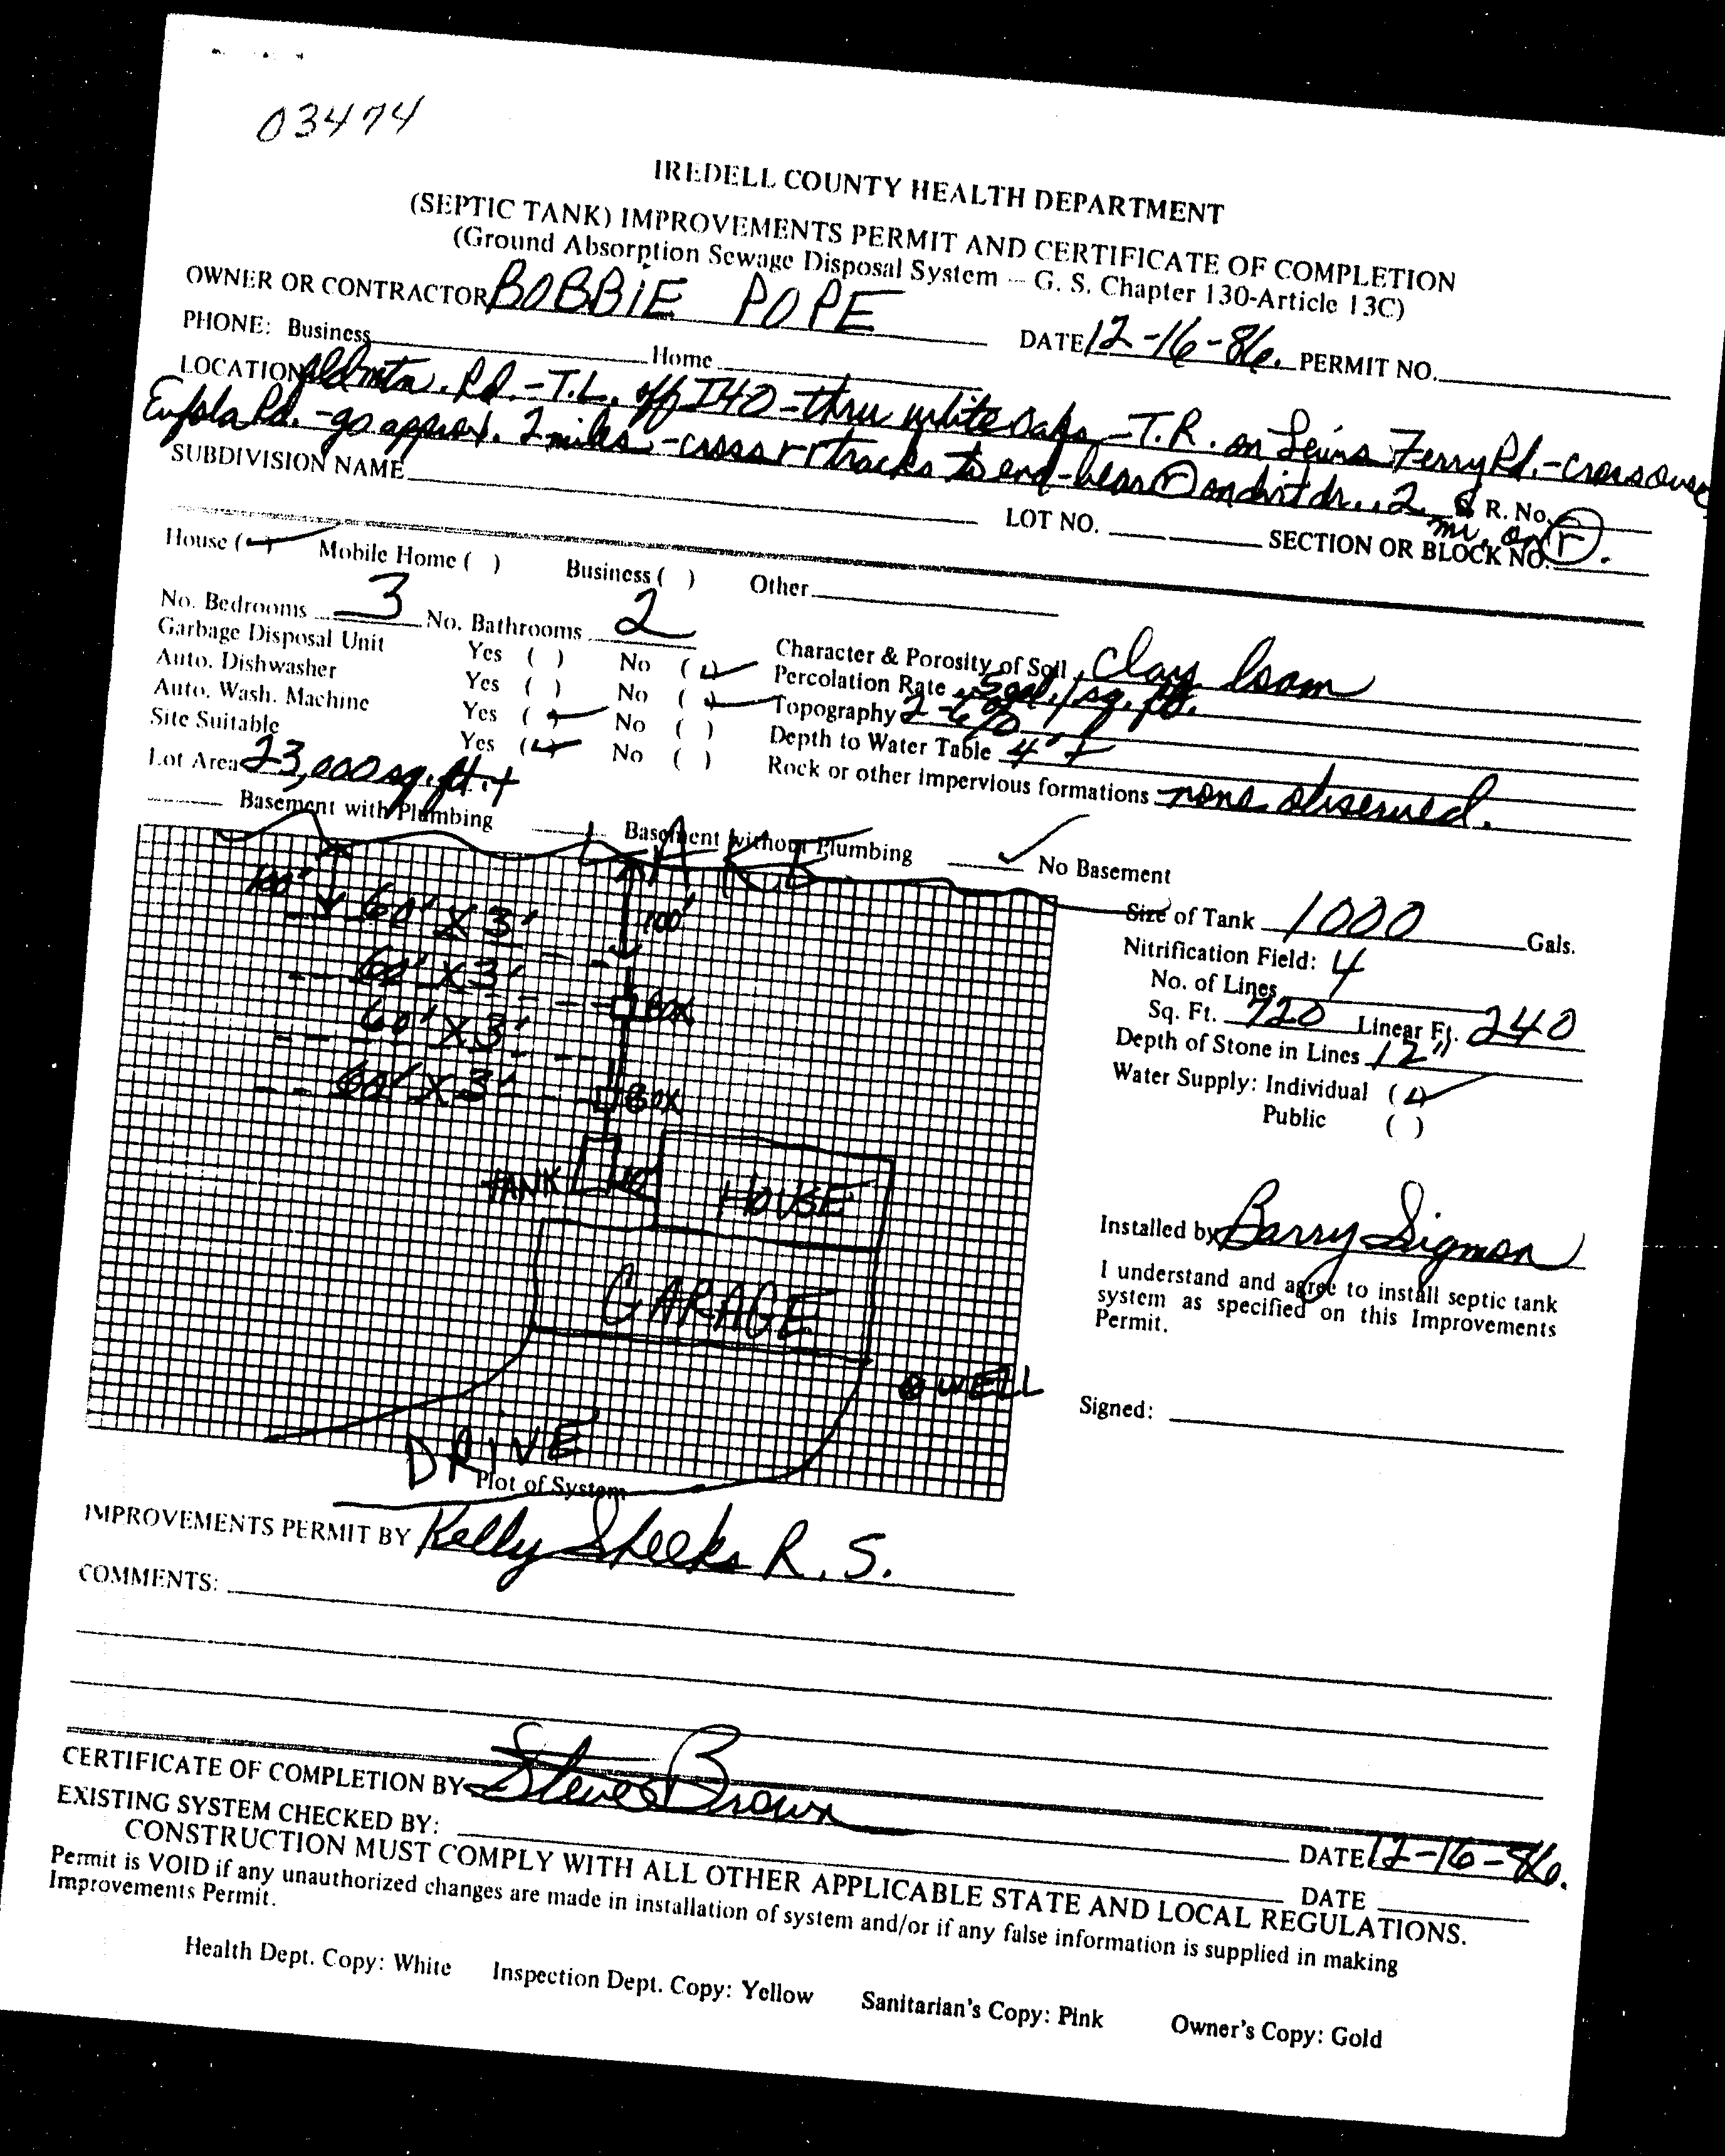 03474
IREDELL COUNTY HEALTH DEPARTMENT
(SEPTIC TANK) IMPROVEMENTS PERMIT AND CERTIFICATE OF COMPLETION
(Ground Absorption Sewage Disposal System — G. S. Chapter 130-Article 13C)
OWNER OR CONTRACTOR BOBBIE POPE DATE 12-16-86. PERMIT NO.
PHONE: Business Home
LOCATION Old mtn. Rd. - T.L. off I40 - thru white Oaks - T.R. on Ferry Rd. - cross over
Eufola Rd. - go approx. 2 miles - cross r r tracks to end - bear (r) on dirt dr. .2 mi. on (r).
SUBDIVISION NAME S. R. No.
LOT NO. SECTION OR BLOCK NO.
House (✓) Mobile Home ( ) Business ( ) Other
No. Bedrooms 3 No. Bathrooms 2
Garbage Disposal Unit Yes ( ) No (✓) Character & Porosity of Soil Clay loam
Auto. Dishwasher Yes ( ) No (✓) Percolation Rate gal./sq. ft.
Auto. Wash. Machine Yes (✓) No ( ) Topography 2-6%
Site Suitable Yes (✓) No ( ) Depth to Water Table 4' +
Lot Area 23,000 sq. ft. + Rock or other impervious formations none observed.
Basement with Plumbing Basement without Plumbing ✓ No Basement
LAKE
100' 60' X 3' 100'
60' X 3'
60' X 3' BOX
60' X 3' BOX
TANK 10' HOUSE
GARAGE
WELL
DRIVE
Plot of System
Size of Tank 1000 Gals.
Nitrification Field: 4
No. of Lines
Sq. Ft. 720 Linear Ft. 240
Depth of Stone in Lines 12"
Water Supply: Individual (✓)
Public ( )
Installed by Barry Sigmon
I understand and agree to install septic tank
system as specified on this Improvements
Permit.
Signed:
IMPROVEMENTS PERMIT BY Kelly Sheeks R. S.
COMMENTS:
CERTIFICATE OF COMPLETION BY Steve Brown DATE 12-16-86.
EXISTING SYSTEM CHECKED BY: DATE
CONSTRUCTION MUST COMPLY WITH ALL OTHER APPLICABLE STATE AND LOCAL REGULATIONS.
Permit is VOID if any unauthorized changes are made in installation of system and/or if any false information is supplied in making
Improvements Permit.
Health Dept. Copy: White Inspection Dept. Copy: Yellow Sanitarian's Copy: Pink Owner's Copy: Gold